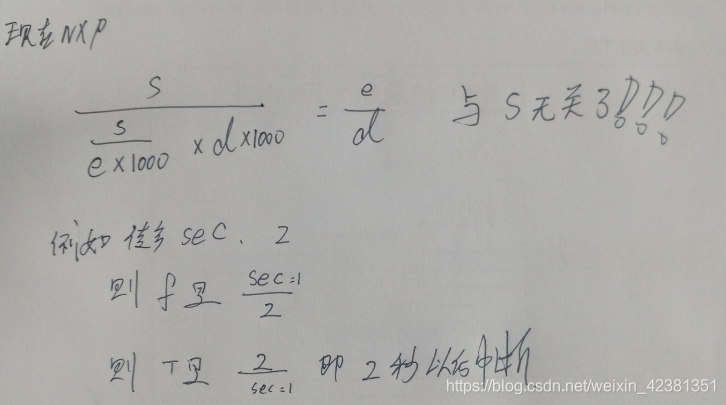 现在NXP
s / (s/(e×1000) × d×1000) = e/d 与 S 无关了!!!
例如 传参 sec、2
则 f 是 sec=1/2
则 T 是 2/sec=1 即 2 秒以后中断
https://blog.csdn.net/weixin_42381351